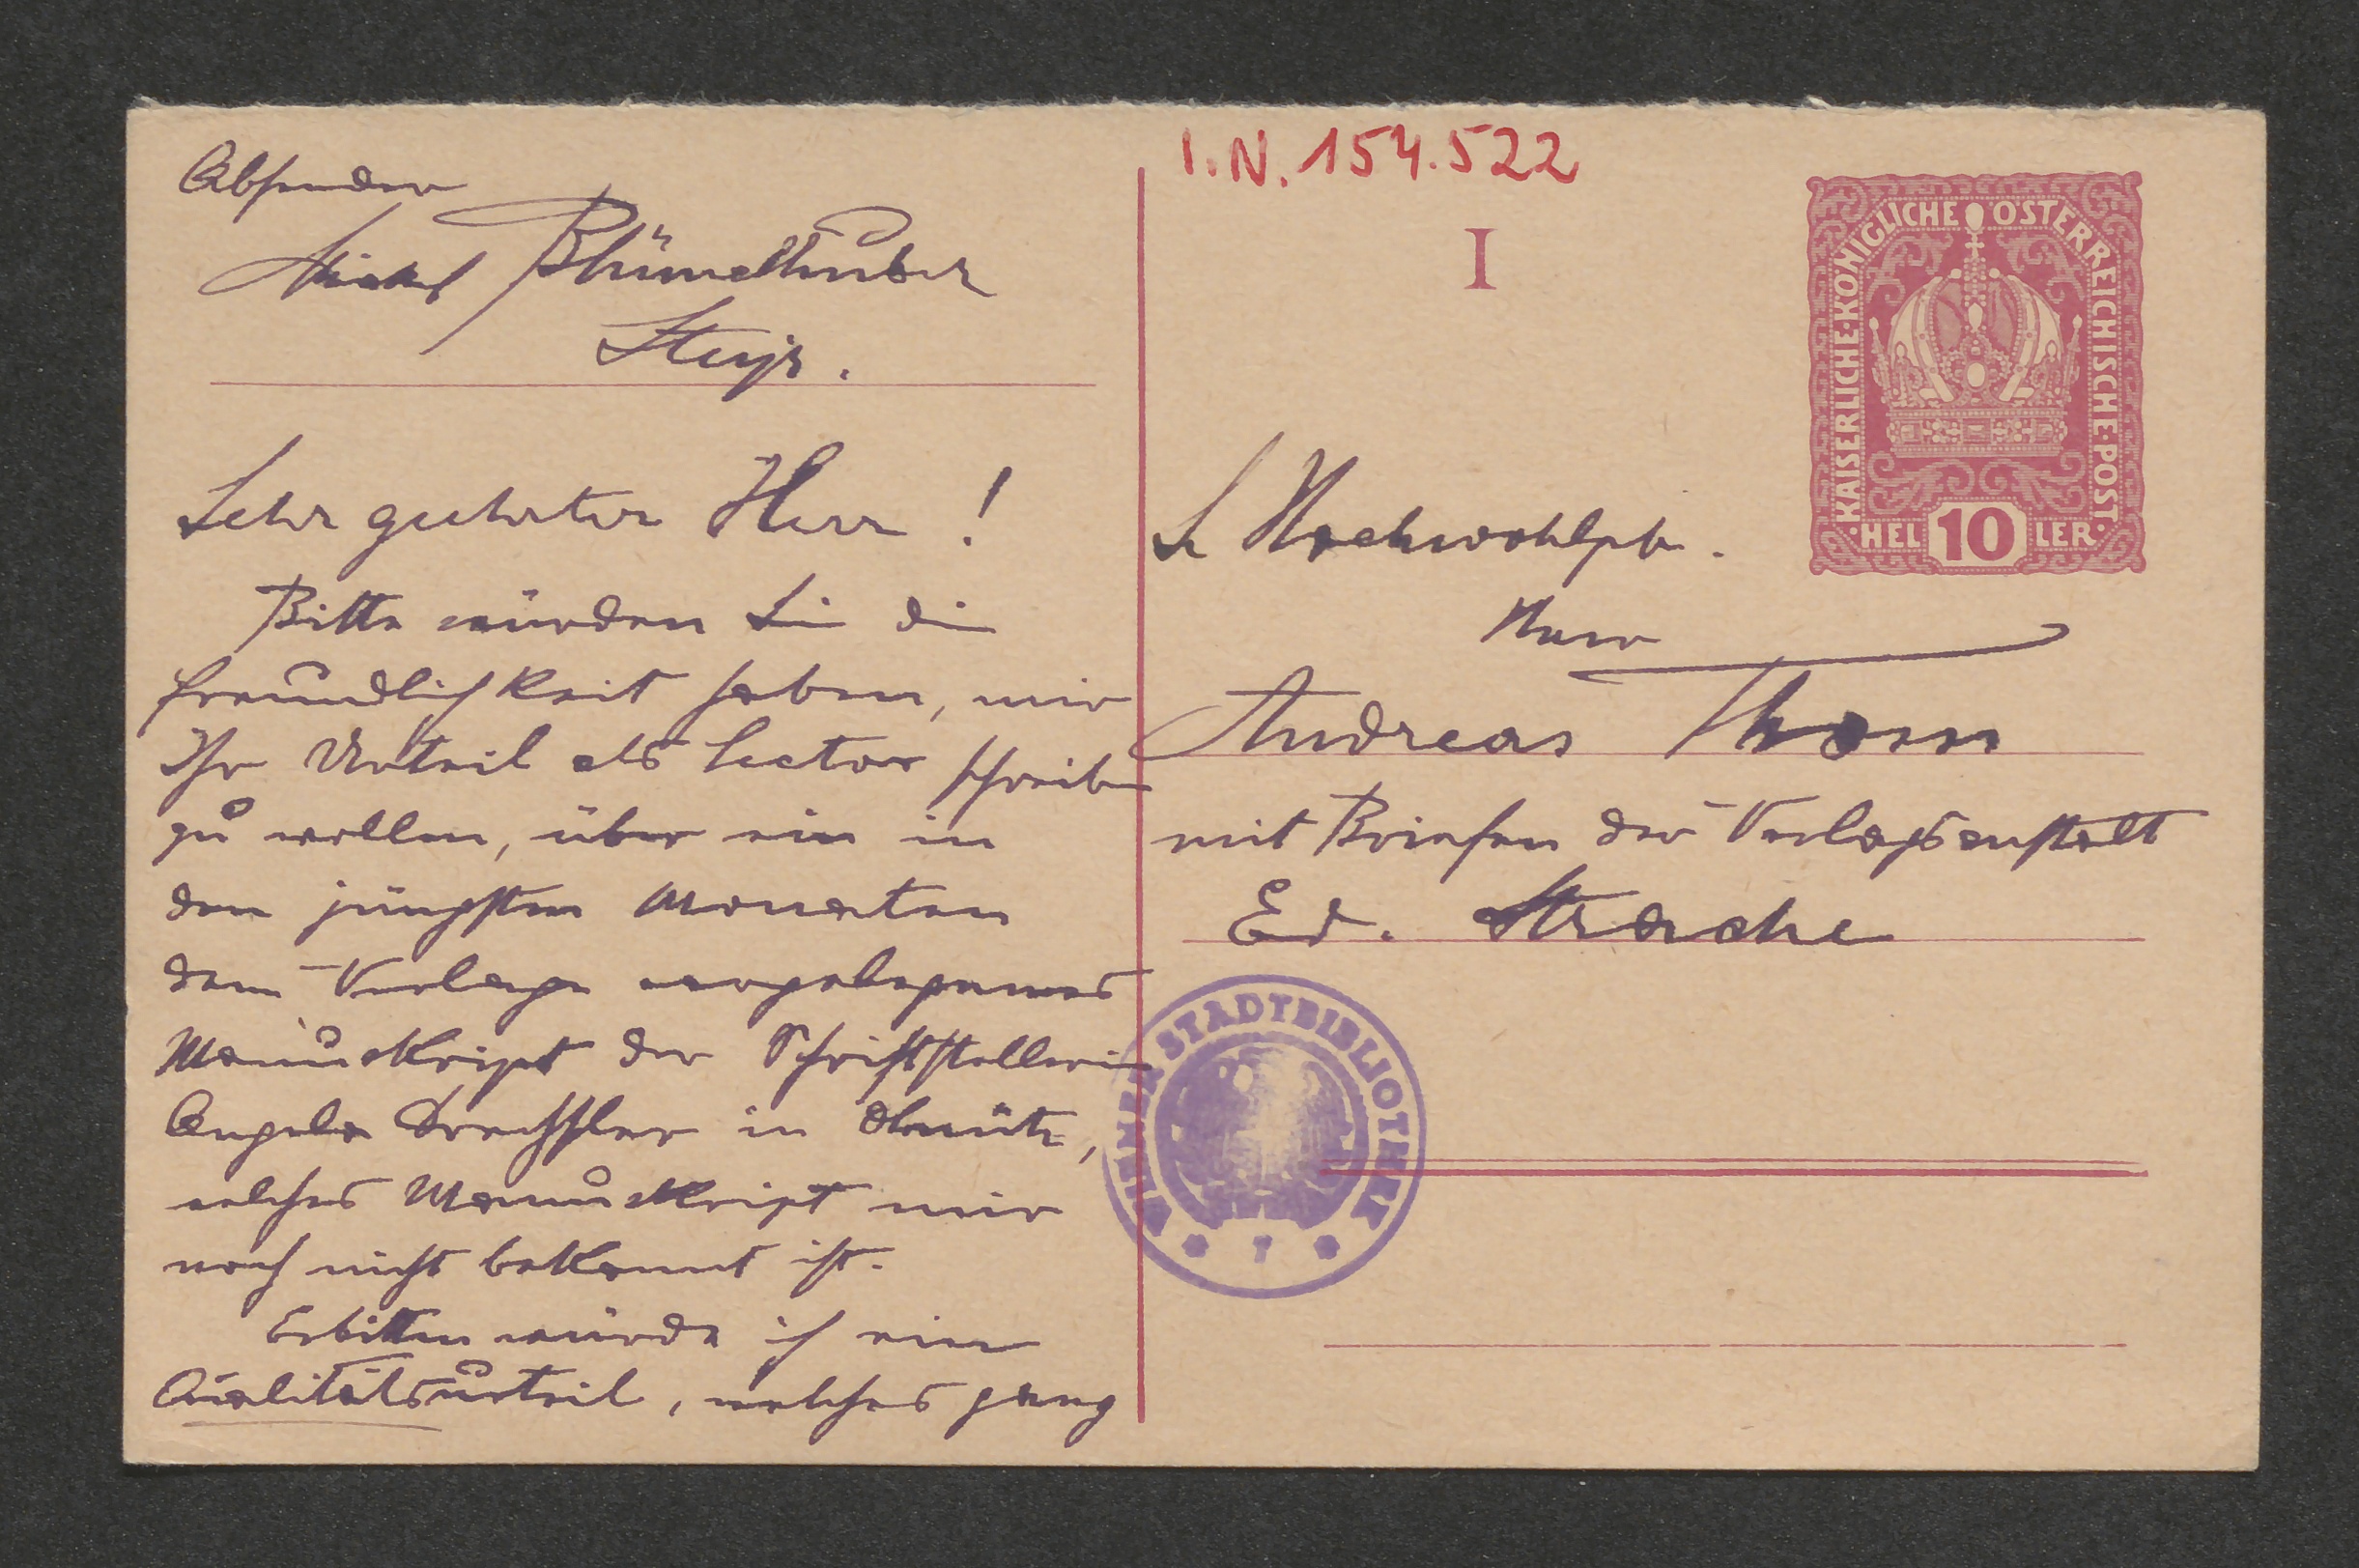 Absender
Michael Blümelhuber
Steyr.
Sehr geehrter Herr!
Bitte würden Sie die
Freundlichkeit haben, mir
Ihr Urteil als Lector schreiben
zu wollen, über ein in
den jüngsten Monaten
dem Verlage vorgelegenes
Manuskript der Schriftstellerin
Angela Drechsler in Olmütz,
welches Manuskript mir
noch nicht bekannt ist.
Erbitten würde ich ein
Qualitätsurteil, welches ganz
I.N. 154.522
I
KAISERLICHE·KÖNIGLICHE ÖSTERREICHISCHE·POST
HEL 10 LER
Sr Hochwohlgb.
Herr
Andreas Thom
mit Briefen der Verlagsanstalt
Ed. Strache
WIENER STADTBIBLIOTHEK